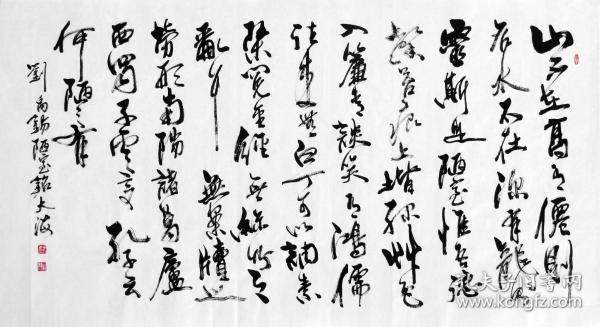 山不在高有僊則
名水不在深有龍則
靈斯是陋室惟吾德
馨苔痕上堦緑草色
入簾青談笑有鴻儒
往来無白丁可以調素
琴閱金經無絲竹之
亂耳無案牘之
勞形南陽諸葛廬
西蜀子雲亭孔子云
何陋之有
劉禹錫陋室銘大
孔夫子旧书网
kongfz.com